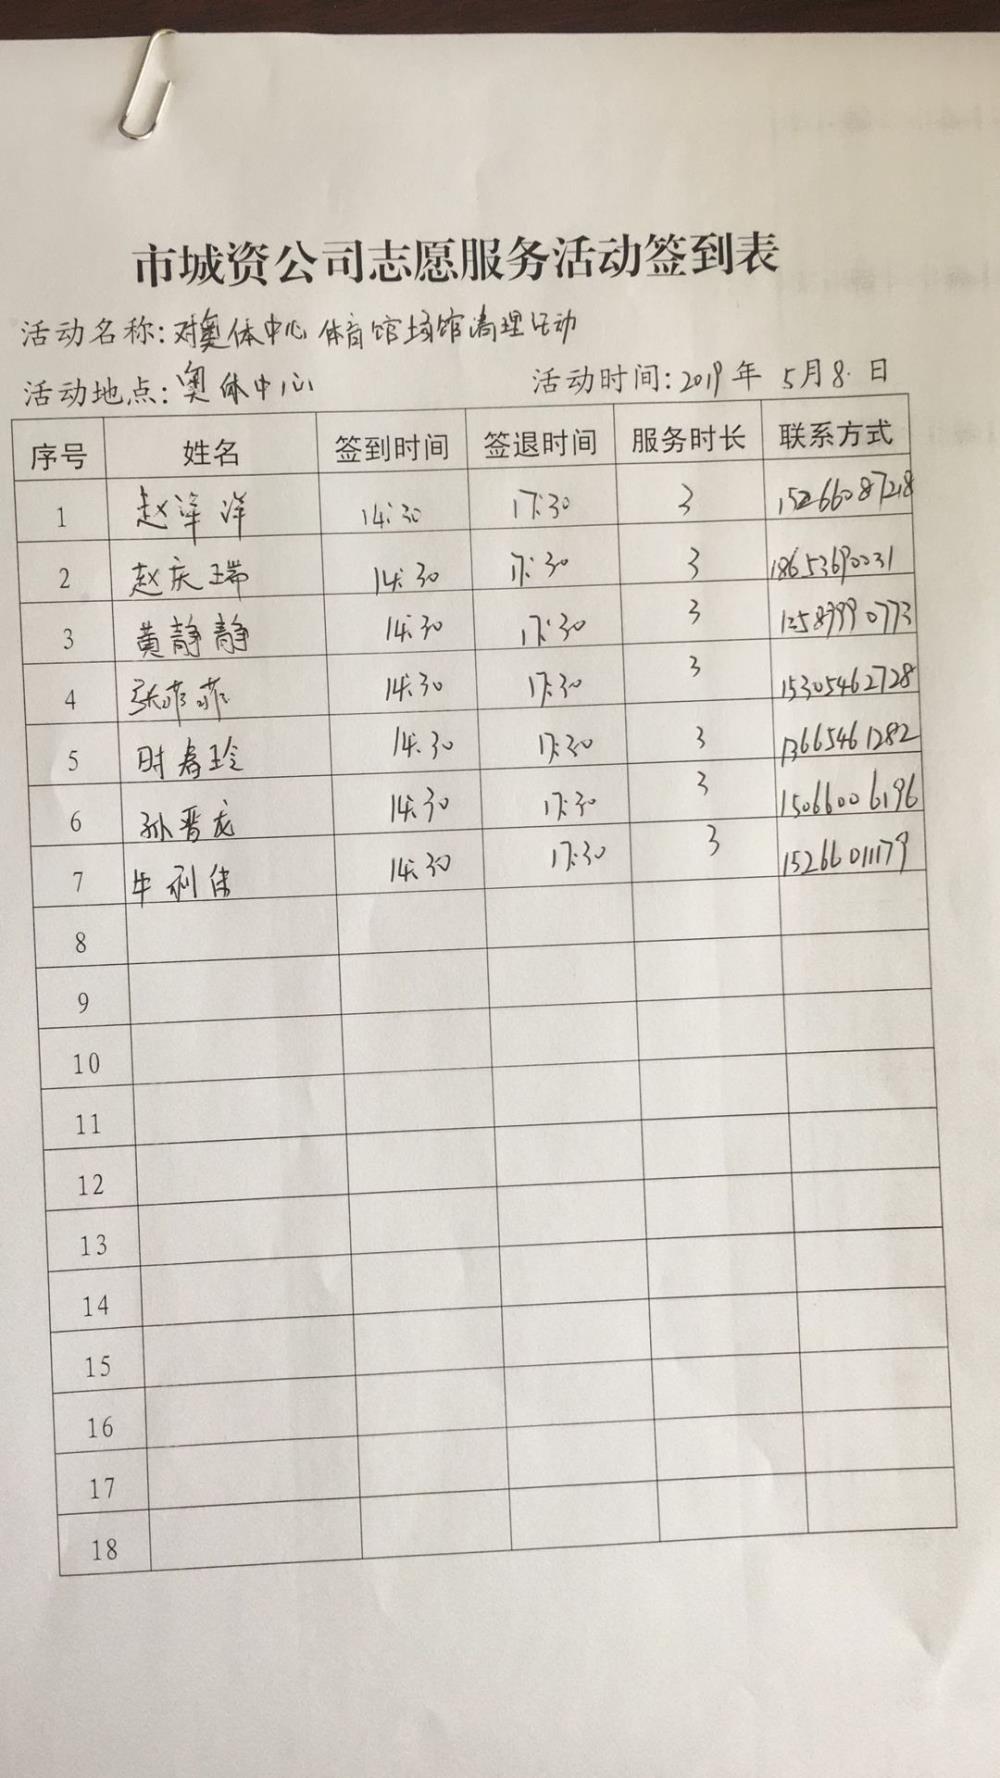 市城资公司志愿服务活动签到表
活动名称:对奥体中心体育馆场馆清理活动
活动地点:奥体中心 活动时间:2019年 5月8日
序号 姓名 签到时间 签退时间 服务时长 联系方式
1 赵洋洋 14:30 17:30 3 15266087218
2 赵庆瑞 14:30 17:30 3 18653690031
3 黄静静 14:30 17:30 3 0773
4 张菲菲 14:30 17:30 3 15305462728
5 时春玲 14:30 17:30 3 13665461282
6 孙晋龙 14:30 17:30 3 15066006196
7 牛利伟 14:30 17:30 3 15266011179
8
9
10
11
12
13
14
15
16
17
18